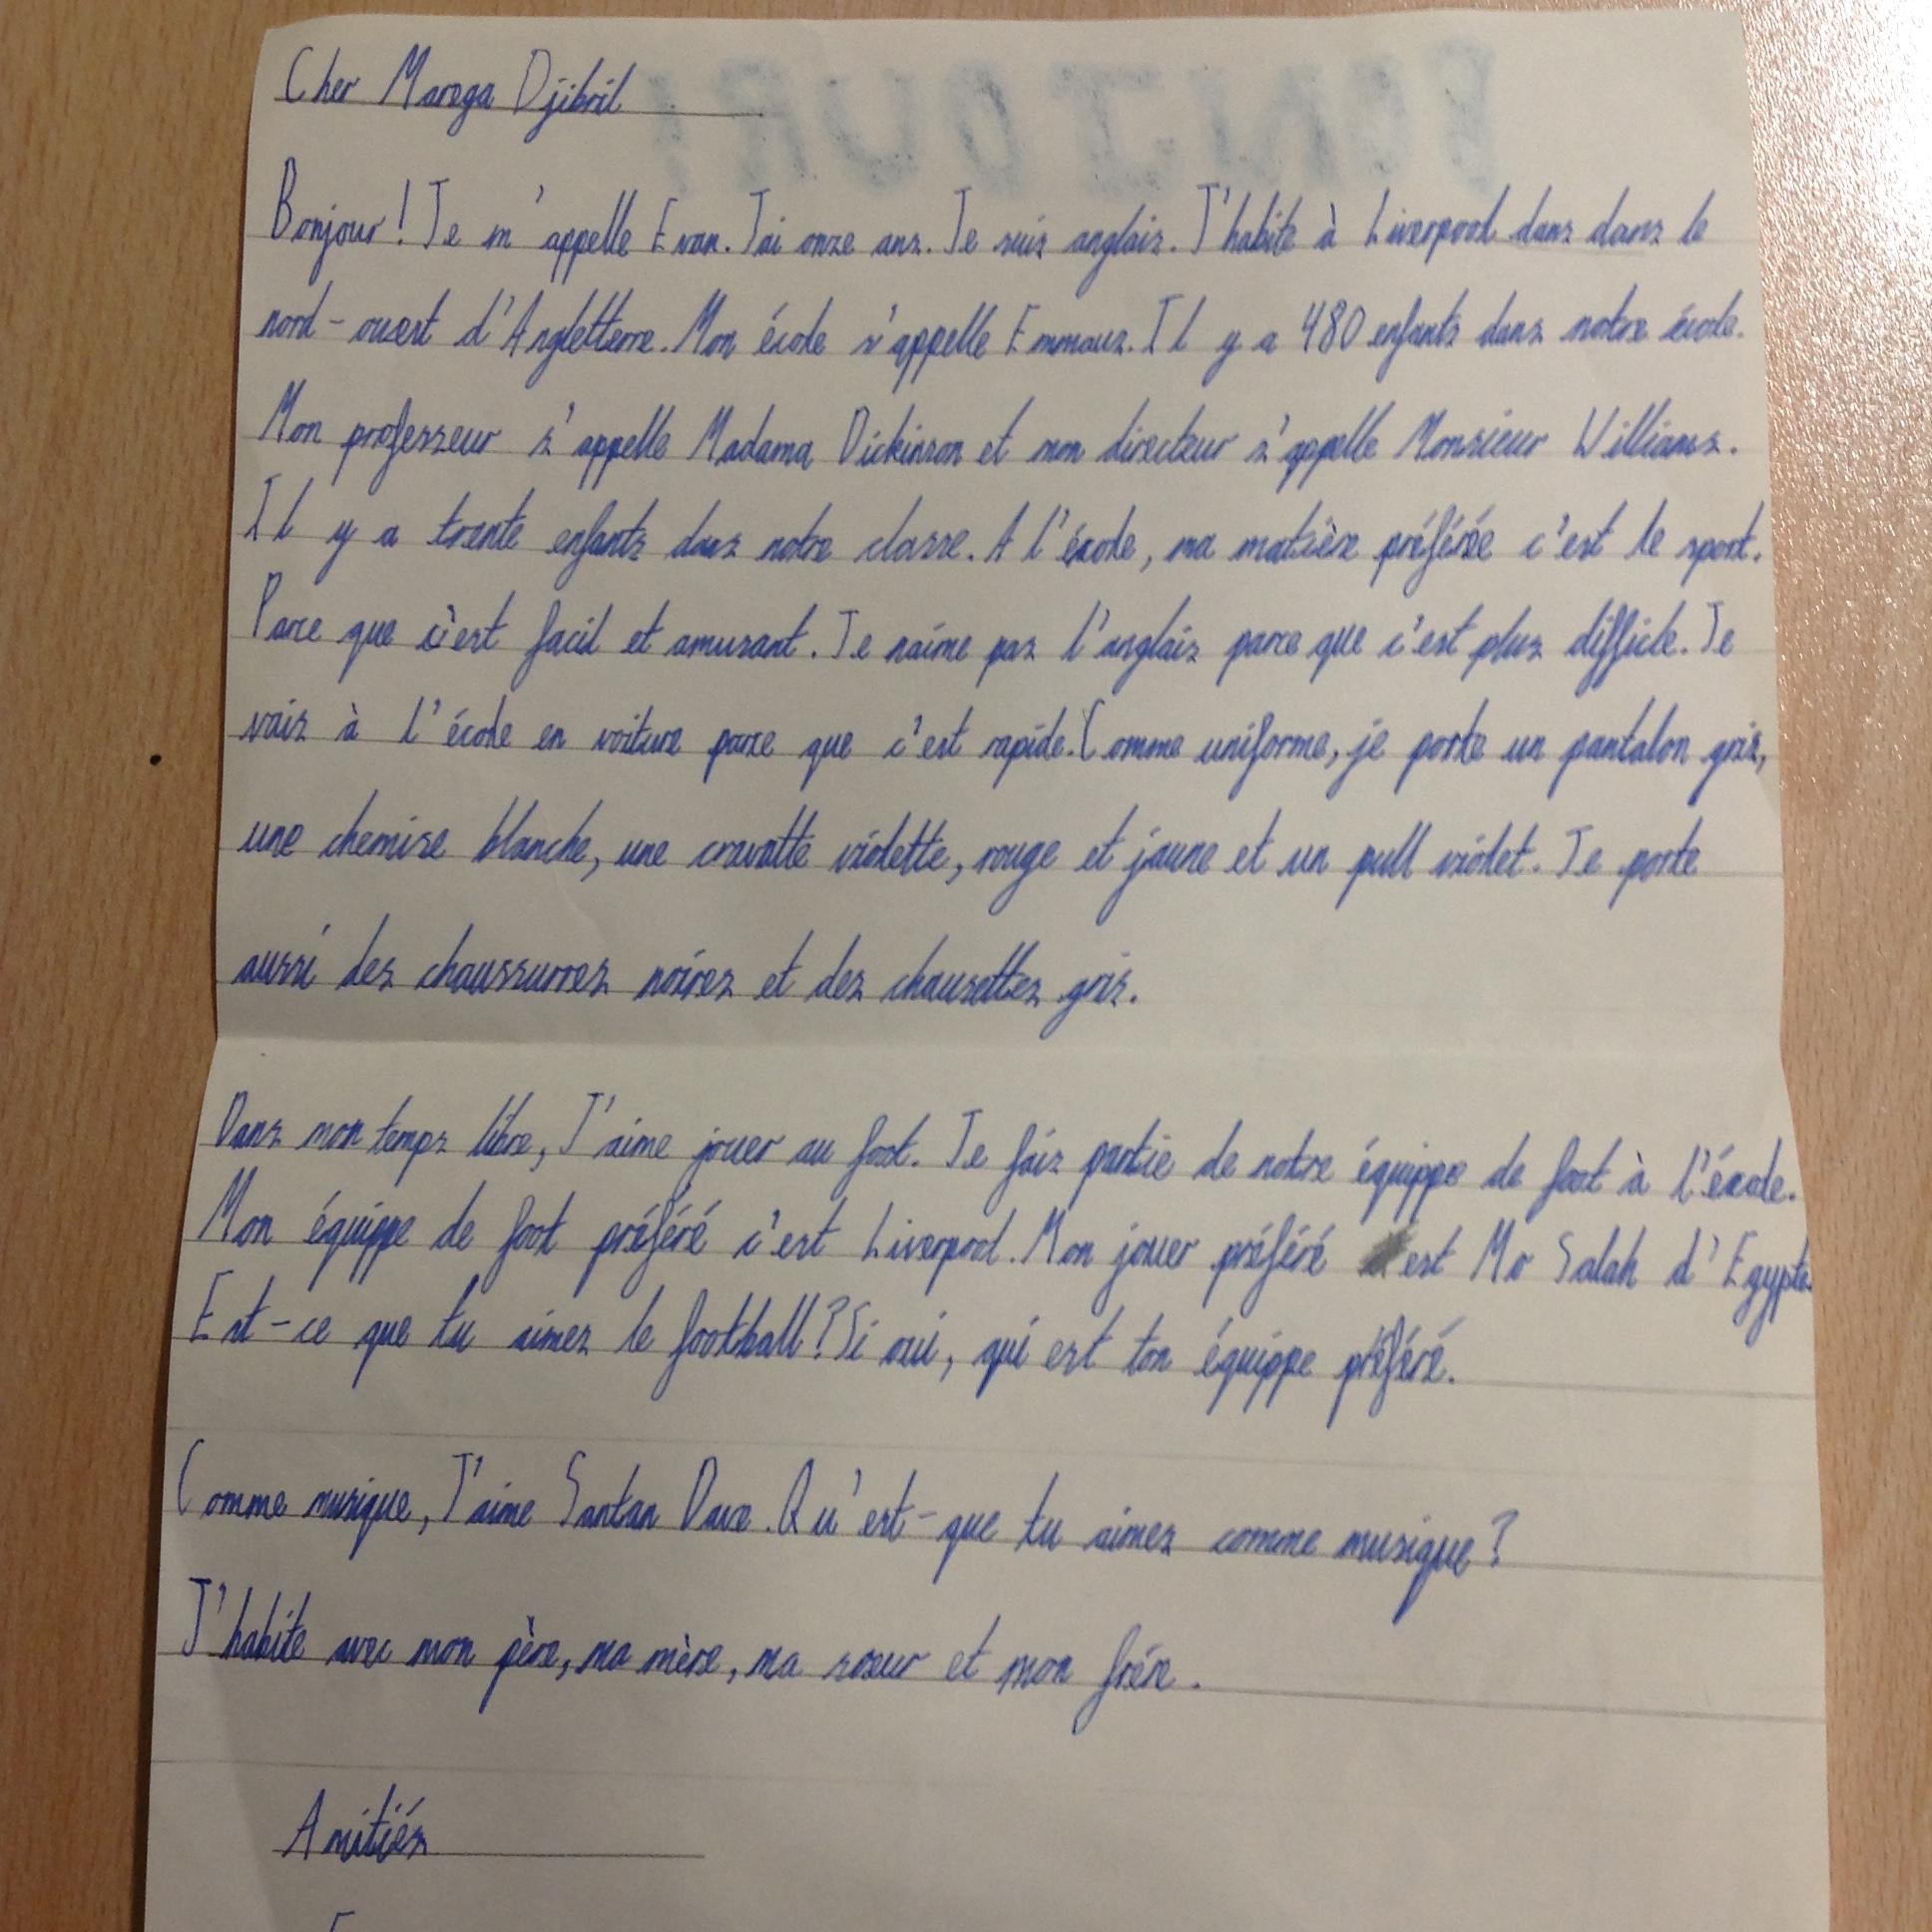 Cher Marega Djibril
BONJOUR!
Bonjour! Je m'appelle Evan. J'ai onze ans. Je suis anglais. J'habite à Liverpool dans dans le
nord-ouest d'Angletterre. Mon école s'appelle Emmaus. Il y a 480 enfants dans notre école.
Mon professeur s'appelle Madama Dickinson et mon directeur s'appelle Monsieur Williams.
Il y a trente enfants dans notre classe. A l'école, ma matière préférée c'est le sport.
Parce que c'est facil et amusant. Je naime pas l'anglais parce que c'est plus difficle. Je
vais à l'école en voiture parce que c'est rapide. Comme uniforme, je porte un pantalon gris,
une chemise blanche, une cravatte violette, rouge et jaune et un pull violet. Je porte
aussi des chaussurres noires et des chausettes gris.
Dans mon temps libre, J'aime jouer au foot. Je fais partie de notre équippe de foot à l'école.
Mon équippe de foot préféré c'est Liverpool. Mon jouer préféré est Mo Salah d'Egypte.
Est-ce que tu aimes le football? Si oui, qui est ton équippe préféré.
Comme musique, J'aime Santan Dave. Qu'est-que tu aimes comme musique?
J'habite avec mon père, ma mère, ma soeur et mon frére.
Amitiés